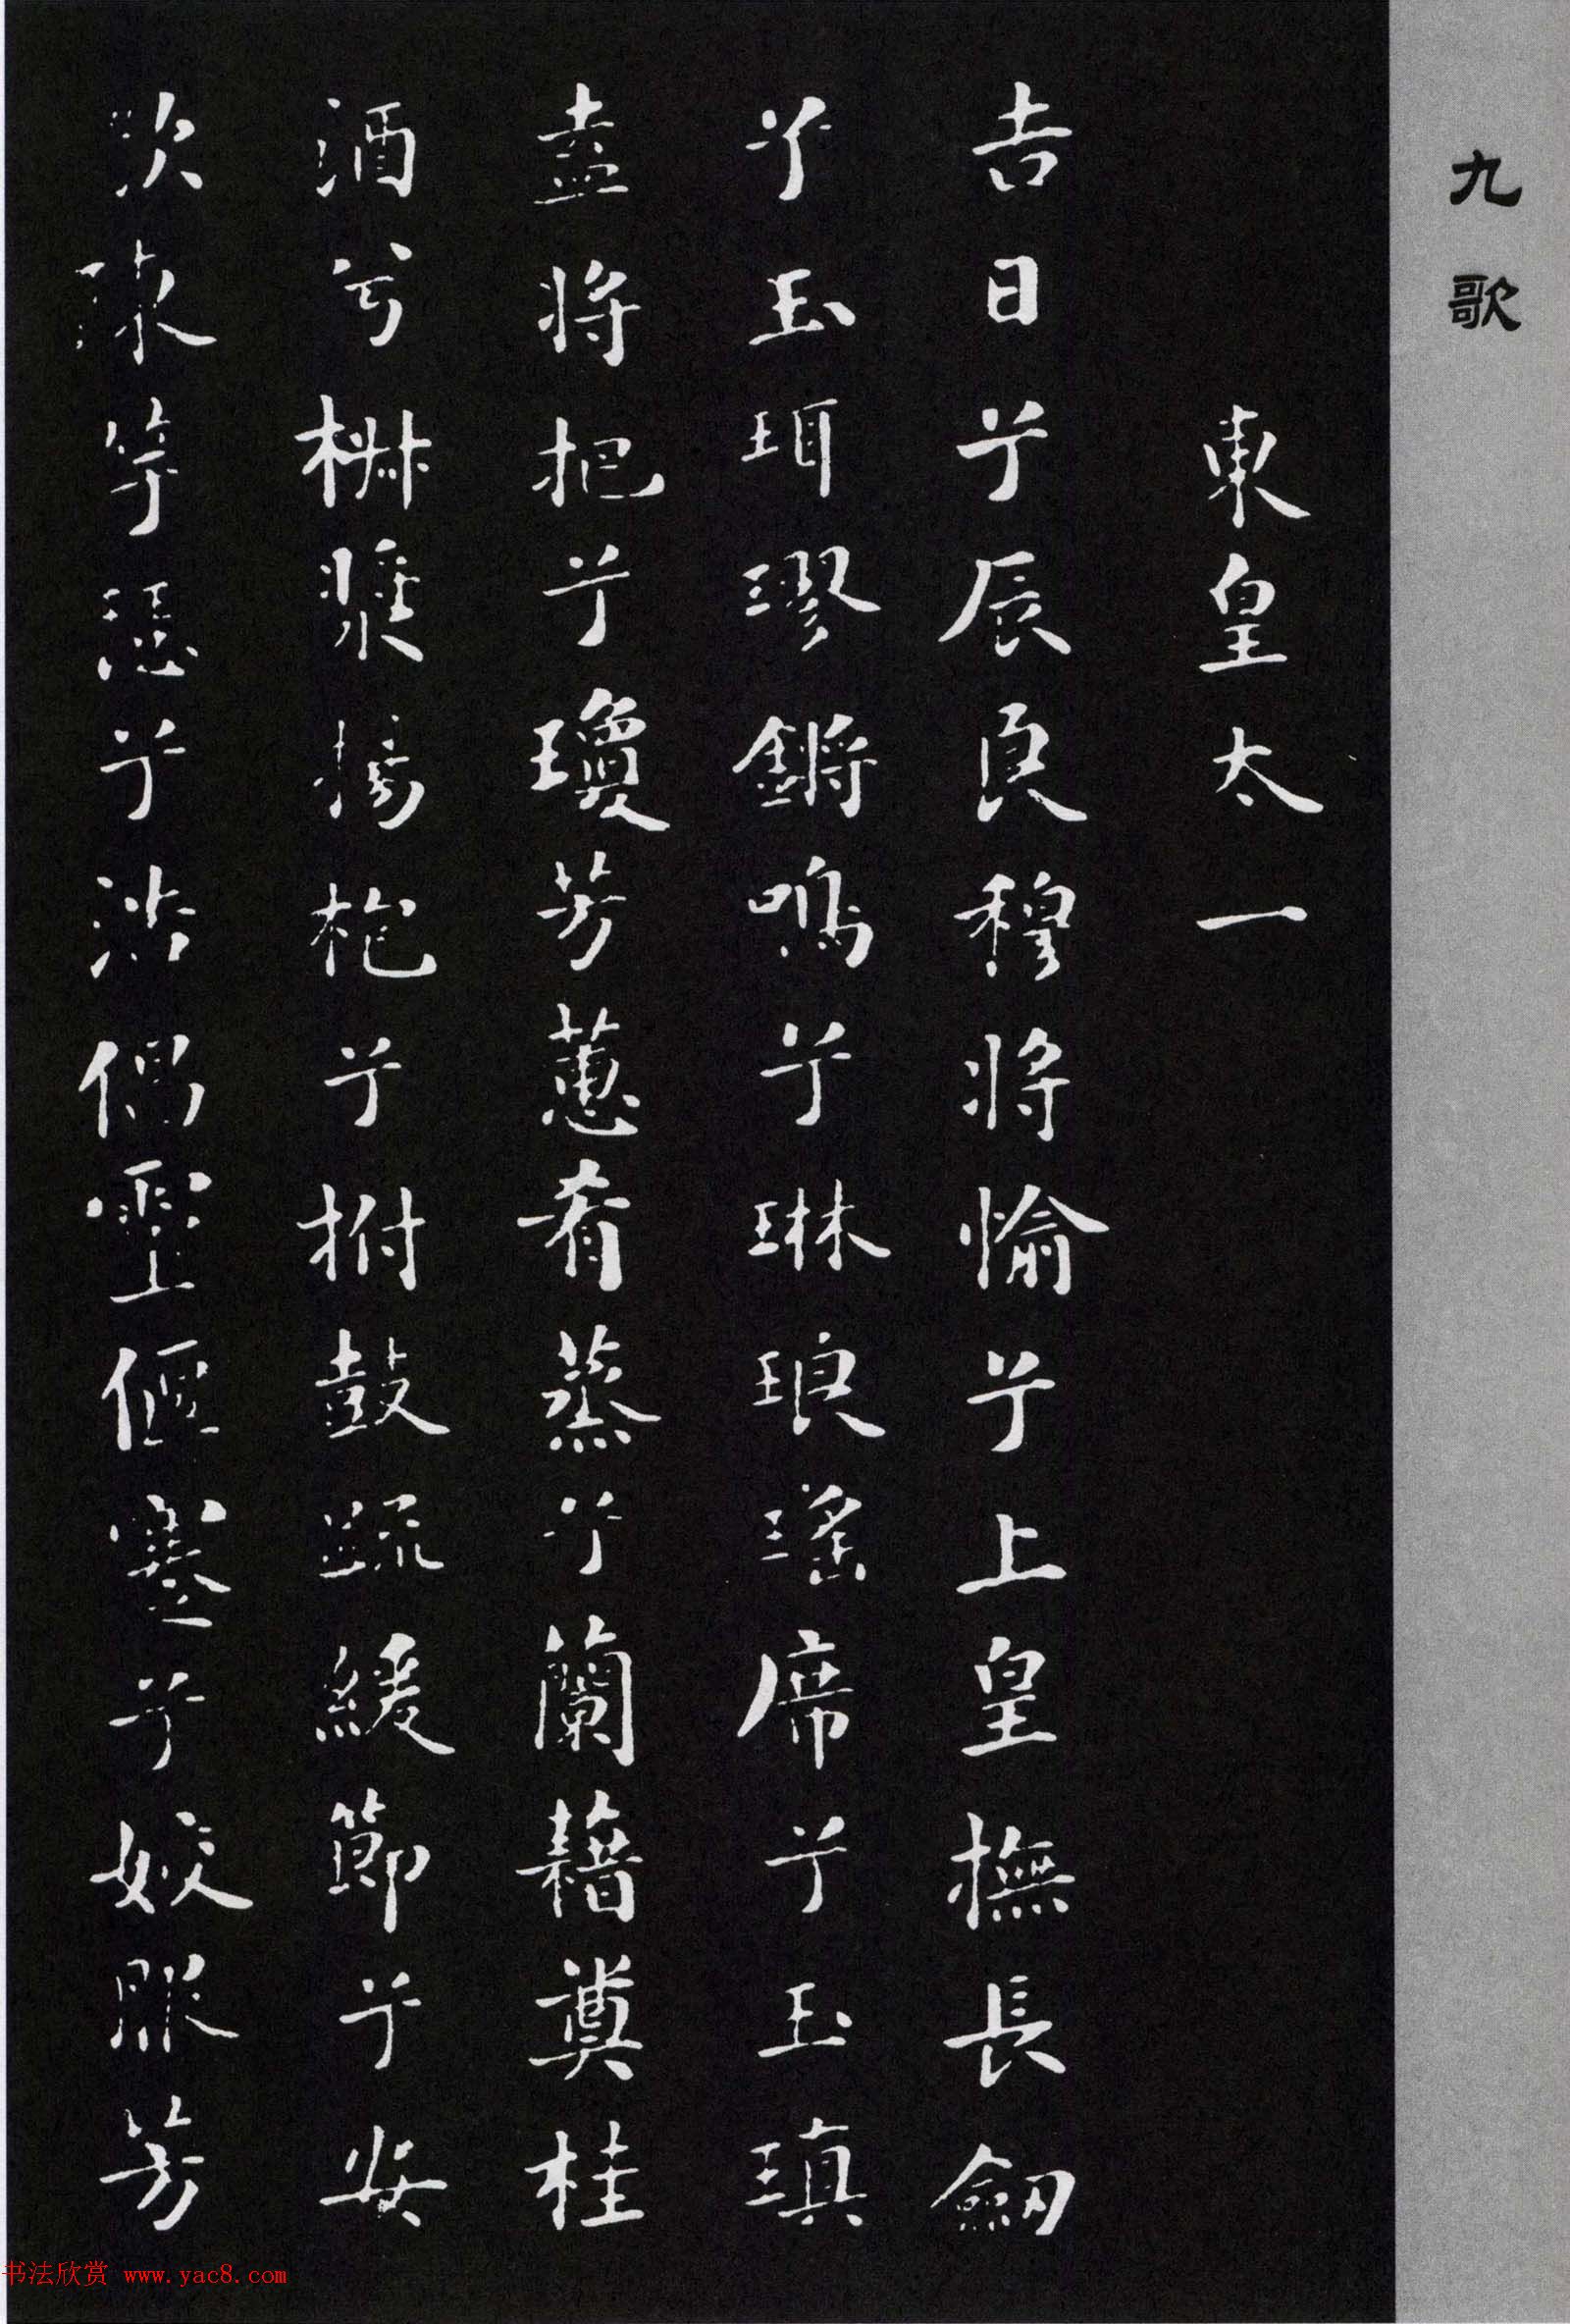 九歌
東皇太一
吉日兮辰良穆將愉兮上皇撫長劒
兮玉珥璆鏘鳴兮琳琅瑤席兮玉瑱
盍將把兮瓊芳蕙肴蒸兮蘭藉奠桂
酒兮椒漿揚枹兮拊鼓疏緩節兮安
歌陳竽瑟兮浩倡靈偃蹇兮姣服芳
书法欣赏 www.yac8.com